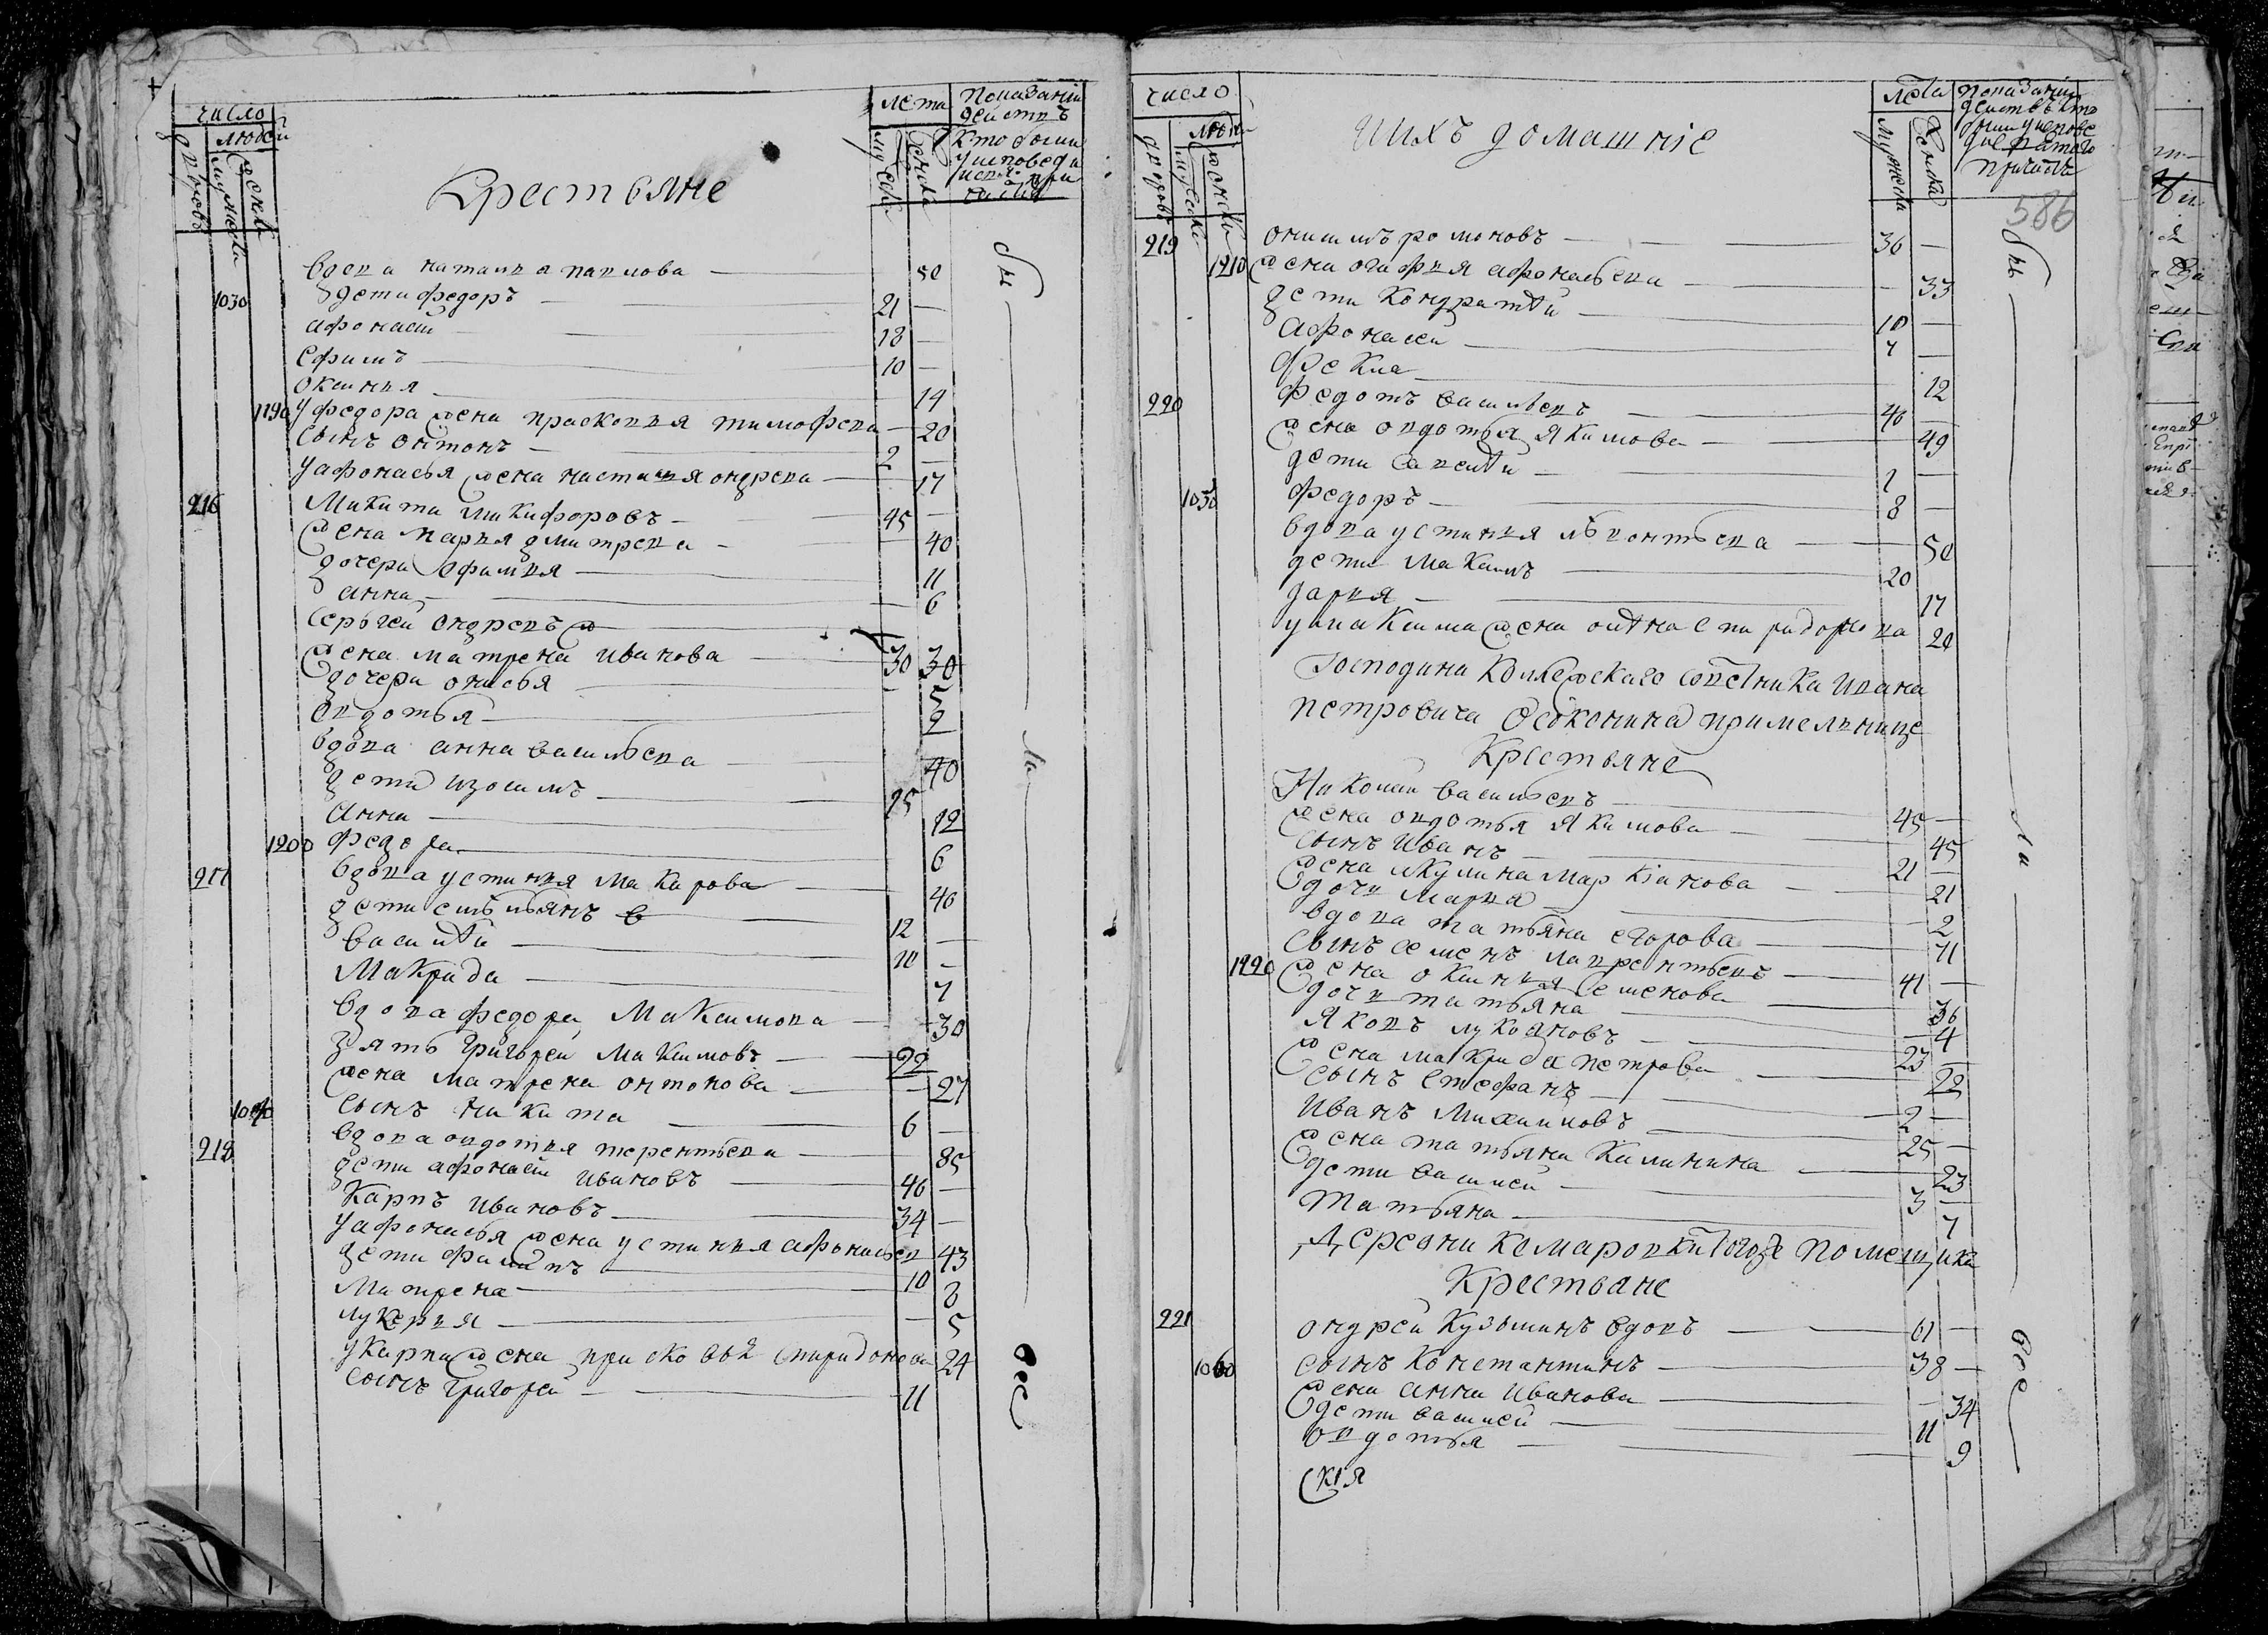 число
людей
дворовъ
мужеска
женска
Крестьяне
лета
мужеска
женска
Показании
действъ
кто были
у исповеди
и св: при
частия
вдова наталья павлова — 50
1030 дети федоръ — 21 —
афонасей — 18 —
ефимъ — 10 —
оксинья — 14
1190 у федора жена прасковья тимофева — 20
сынъ онтонъ — 2 —
у афонасья жена настасья ондрева — 17
216 Микита Никифоровъ — 45 —
жена марья дмитрева — 40
дочери ефимья — 11
анна — 6
Сергей ондревъ — 30
жена матрена иванова — 30
дочери онисья — 5
овдотья — 2
вдова анна васильева — 40
дети изосимъ — 25
Анна — 12
1200 федора — 6
217 вдова устинья макарова — 40
дети емельянъ — 12 —
василей — 10 —
Макрида — 7
вдова федора Максимова — 30
зять григорей Максимовъ — 22
жена матрена онтонова — 27
1040 сынъ никита — 6 —
218 вдова овдотья терентьева — 85
дети афонасей ивановъ — 46 —
Карпъ ивановъ — 34 —
у афонасья жена устинья афонасьев 43
дети филипъ — 10
матрена — 8
лукерья — 5
у карпа жена прасковья спиридонова 24
сынъ григорей — 11
число
людей
дворовъ
мужеска
женска
ИИХЪ домашнiе
лета
мужеска
женска
показании
действъ кто
были у испове
ди и святаго
причастия
586
219 онисимъ романовъ — 36 —
1210 жена огафья афонасьева — 33
дети кондратей — 10 —
Афонасей — 7 —
фекла — 12
220 федотъ васильевъ — 40 —
жена овдотья якимова — 49
дети савелей — —
1050 федоръ — 8 —
вдова устинья леонтьева — 50
дети максимъ — 20
дарья — 17
у максима жена спиридонова 20
Господина коллежскаго советника ивана
петровича при мельнице
Крестьяне
Николай васильевъ — 45 —
жена овдотья якимова — 45
сынъ иванъ — 21 —
жена акулина маркiанова — 21
дочь марья — 2
вдова татьяна егорова — 71
сынъ семенъ лаврентьевъ — 41 —
1220 жена оксинья семенова — 36
дочь татьяна — 4
яковъ лукояновъ — 23
жена макрида петрова — 22
сынъ стефанъ — 2 —
иванъ михаиловъ — 25 —
жена татьяна калинина — 23
дети василей — 3 —
татьяна — 7
Деревни комаровки тогожъ помещика
Крестьяне
221 ондрей кузьминъ вдовъ — 61 —
1060 сынъ константинъ — 38 —
жена анна иванова — 34
дети василей — 11
овдотья — 9
скiя
бы
ли
все
бы
ли
все